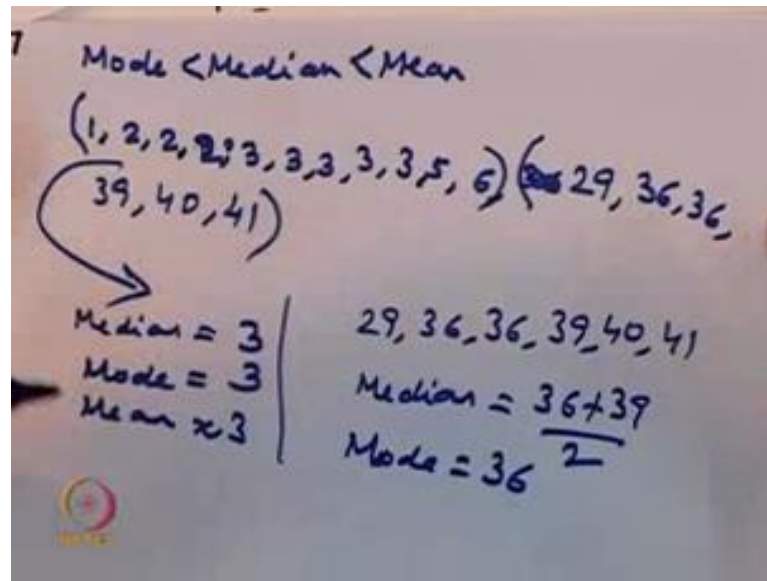 Mode < Median < Mean
(1, 2, 2, 2, 3, 3, 3, 3, 3, 5, 6) (29, 36, 36,
39, 40, 41)
Median = 3
Mode = 3
Mean ≈ 3
29, 36, 36, 39, 40, 41
Median = 36+39
2
Mode = 36